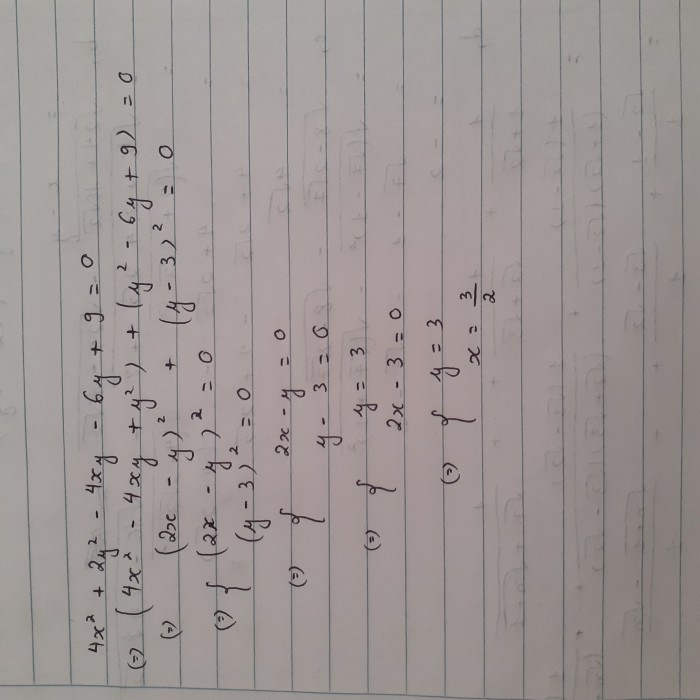 4x² + 2y² - 4xy - 6y + 9 = 0
(=) (4x² - 4xy + y²) + (y² - 6y + 9) = 0
(=) (2x - y)² + (y - 3)² = 0
(=) { (2x - y)² = 0
(y - 3)² = 0
(=) { 2x - y = 0
y - 3 = 0
(=) { y = 3
2x - 3 = 0
(=) { y = 3
x = 3/2